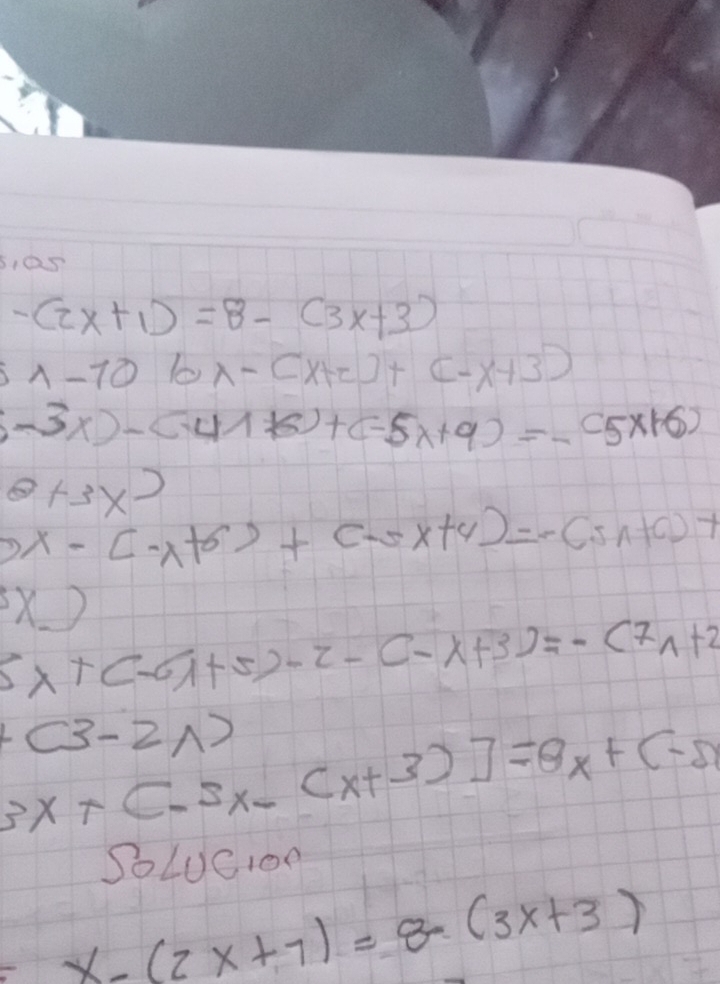 -(2x+1) = 8 - (3x+3)
-10 6x - (x+2) + (-x+3)
-3x) - (-4x+6) + (-5x+9) = - (5x+6)
8 + 3x)
x - (-x+6) + (-5x+4) = - (5x+6) +
x)
5x + (-6x+5) - 2 - (-x+3) = - (7x+2
+ (3-2x)
3x + (-5x - (x+3)] = 8x + (-5x
Solucion
x - (2x+1) = 8 - (3x+3)